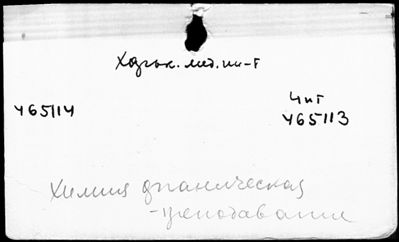 Харьк. мед. ин-т
Чит
465114
465113
Химия органическая
- преподавание